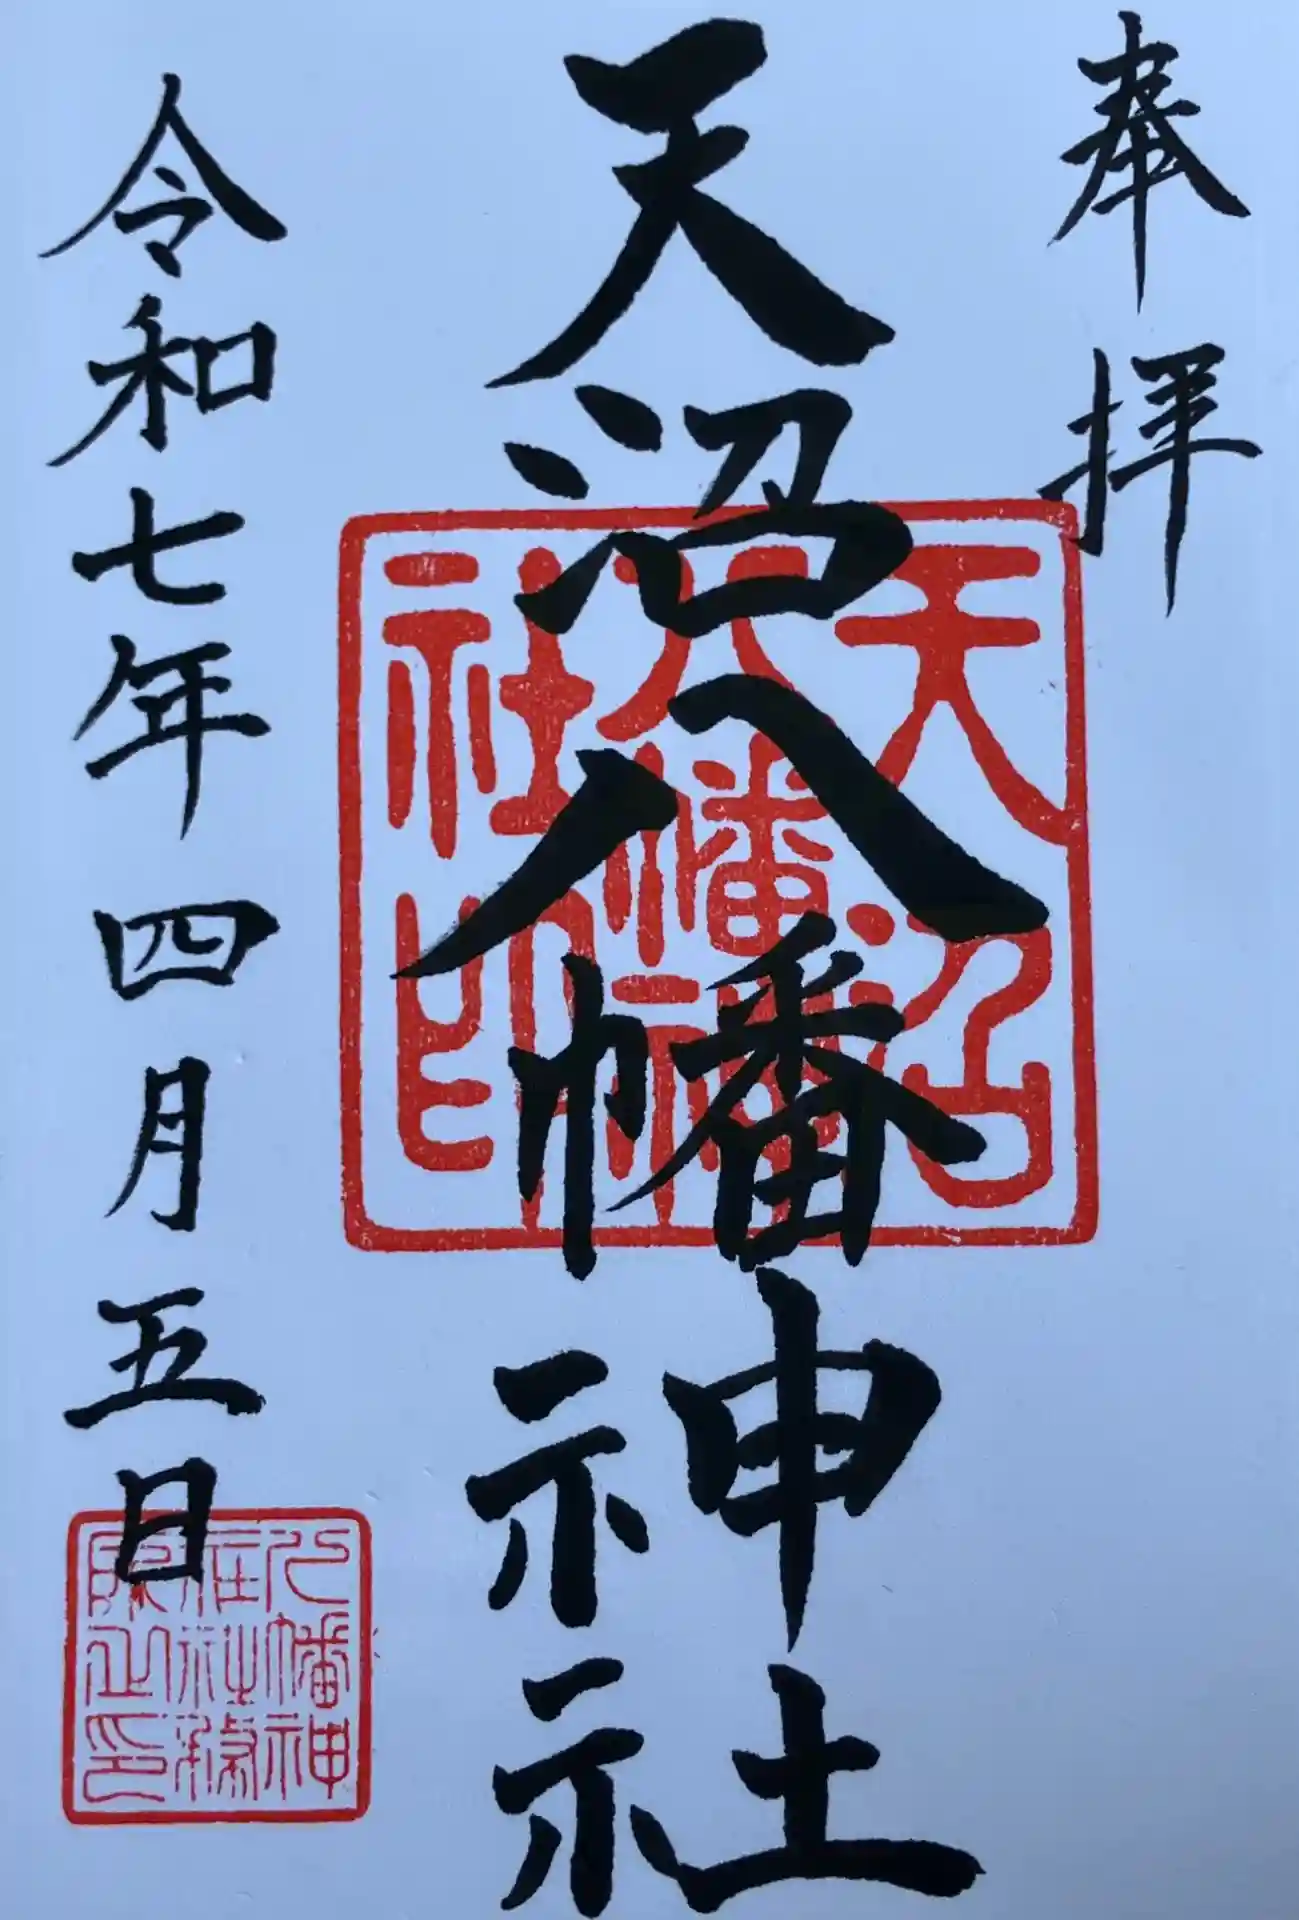 奉拝
天沼八幡神社
天沼
八幡神
社印
令和七年四月五日
八幡神
社務
印